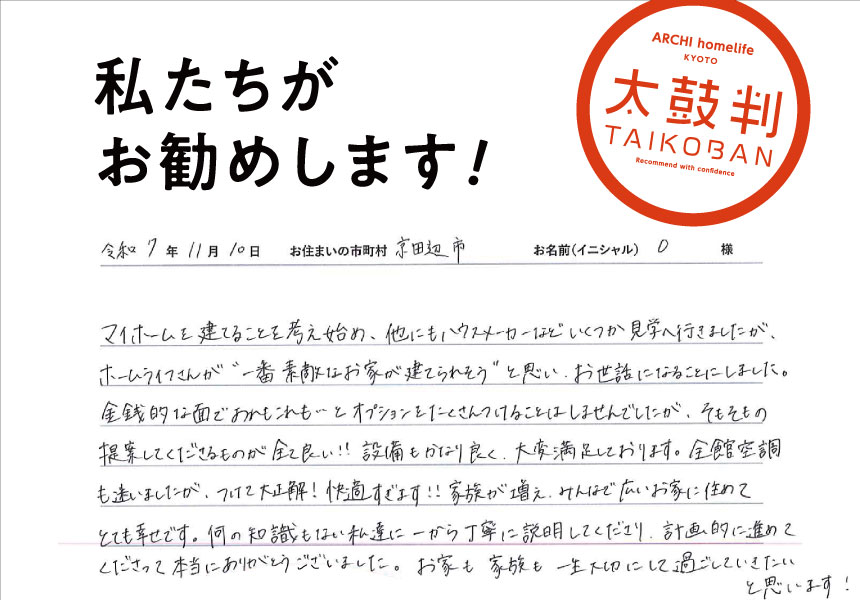 私たちが
お勧めします!
ARCHI homelife
KYOTO
太鼓判
TAIKOBAN
Recommend with confidence
令和 7 年 11 月 10 日 お住まいの市町村 京田辺市 お名前(イニシャル) O 様
マイホームを建てることを考え始め、他にもハウスメーカーなどいくつか見学へ行きましたが、
ホームライフさんが“一番素敵なお家が建てられそう”と思い、お世話になることにしました。
金銭的な面であれもこれも…とオプションをたくさんつけることはしませんでしたが、そもそもの
提案してくださるものが全て良い!!設備もかなり良く、大変満足しております。全館空調
も迷いましたが、つけて大正解!快適すぎます!!家族が増え、みんなで広いお家に住めて
とても幸せです。何の知識もない私達に一から丁寧に説明してくださり、計画的に進めて
くださって本当にありがとうございました。お家も家族も一生大切にして過ごしていきたい
と思います!